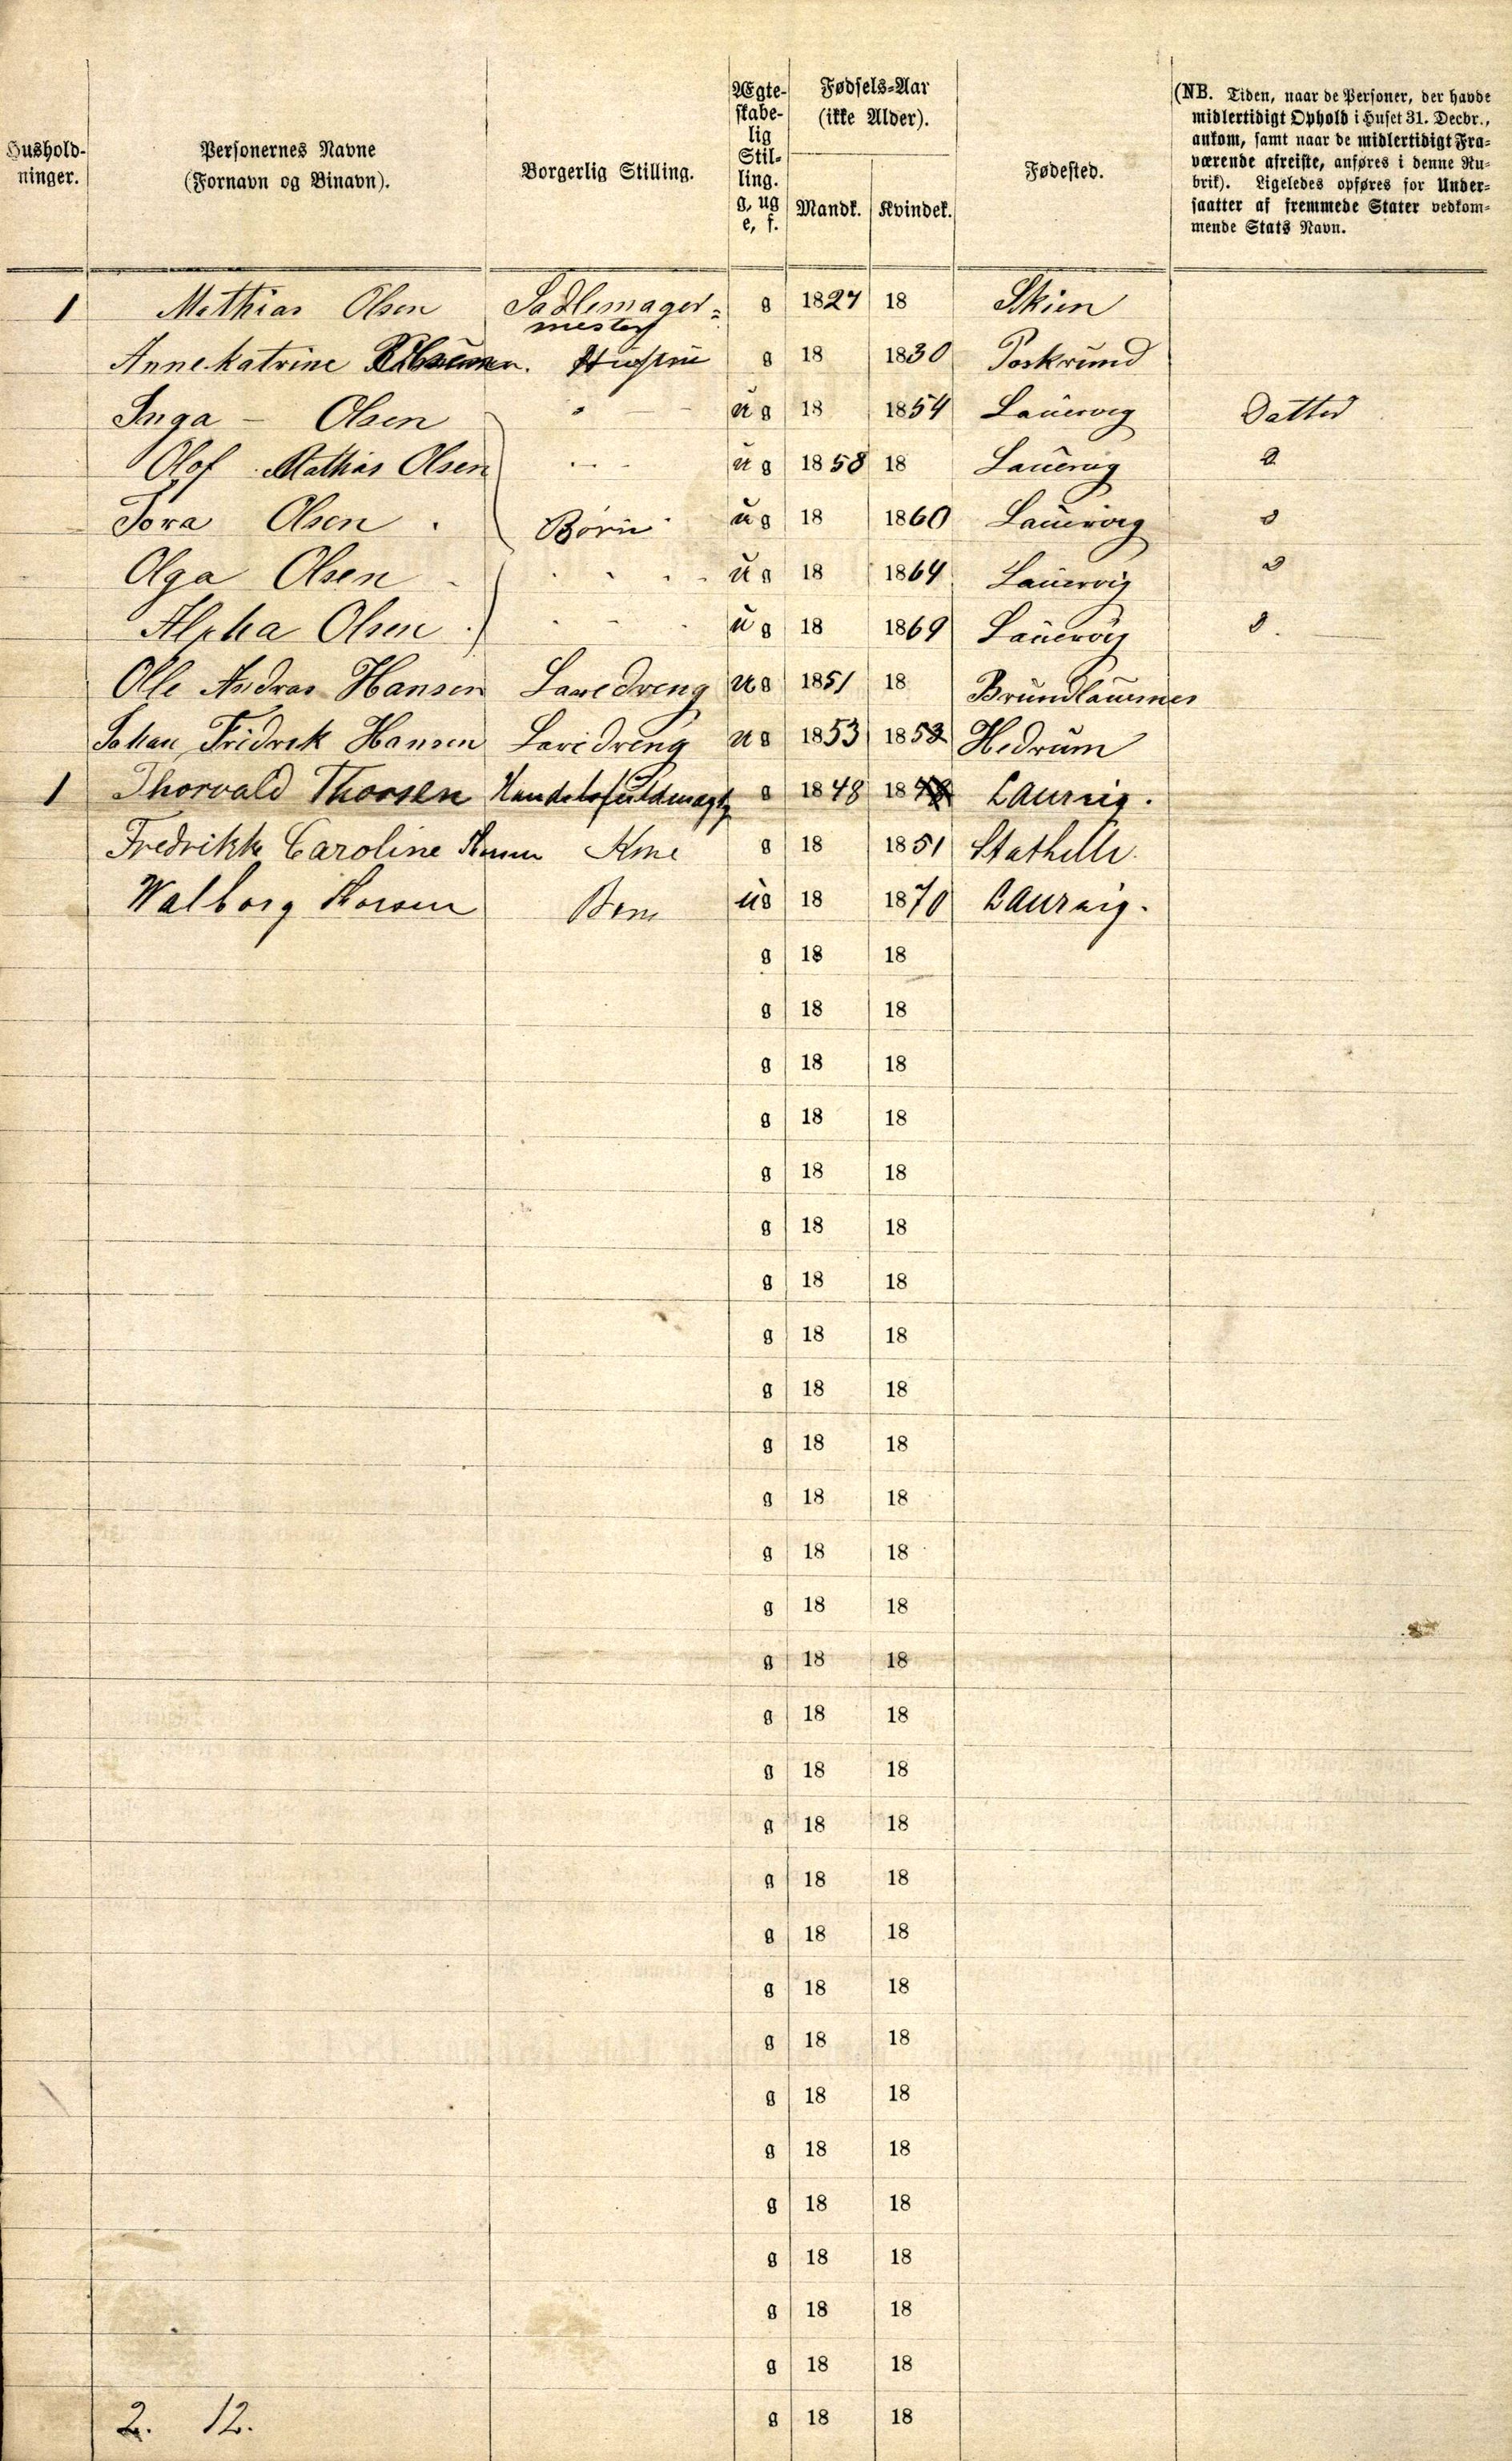 Hushold-
ninger.
Personernes Navne
(Fornavn og Binavn).
Borgerlig Stilling.
Ægte-
skabe-
lig
Stil-
ling.
g, ug
e, f.
Fødsels-Aar
(ikke Alder).
Mandk. Kvindek.
Fødested.
(NB. Tiden, naar de Personer, der havde
midlertidigt Ophold i Huset 31. Decbr.,
ankom, samt naar de midlertidigt Fra-
værende afreiste, anføres i denne Ru-
brik). Ligeledes opføres for Under-
saatter af fremmede Stater vedkom-
mende Stats Navn.
1 Mathias Olsen Sadlemager= g 1827 18 Skien
mester
Anne Katrine Hustru g 18 1830 Poskrund
Inga - Olsen " ug 18 1854 Lauervig Datter
Olof Mathias Olsen ug 1858 18 Lauervig
Tora Olsen Børn ug 18 1860 Lauervig
Olga Olsen ug 18 1864 Lauervig
Alpha Olsen ug 18 1869 Lauervig
Olle Andras Hansen Laredreng ug 1851 18 Brundlaurnes
Johan Fridrek Hansen Laredreng ug 1853 1853 Hedrum
1 Thorvald Thorsen Handelsfuldmægtg g 1848 1848 Laurvig.
Fredrikke Caroline Thorsen Kone g 18 1851 Stathelle.
Walborg Thorsen Barn ug 18 1870 Laurvig.
g 18 18
g 18 18
g 18 18
g 18 18
g 18 18
g 18 18
g 18 18
g 18 18
g 18 18
g 18 18
g 18 18
g 18 18
g 18 18
g 18 18
g 18 18
g 18 18
g 18 18
g 18 18
g 18 18
g 18 18
g 18 18
g 18 18
g 18 18
g 18 18
g 18 18
g 18 18
g 18 18
2. 12. g 18 18